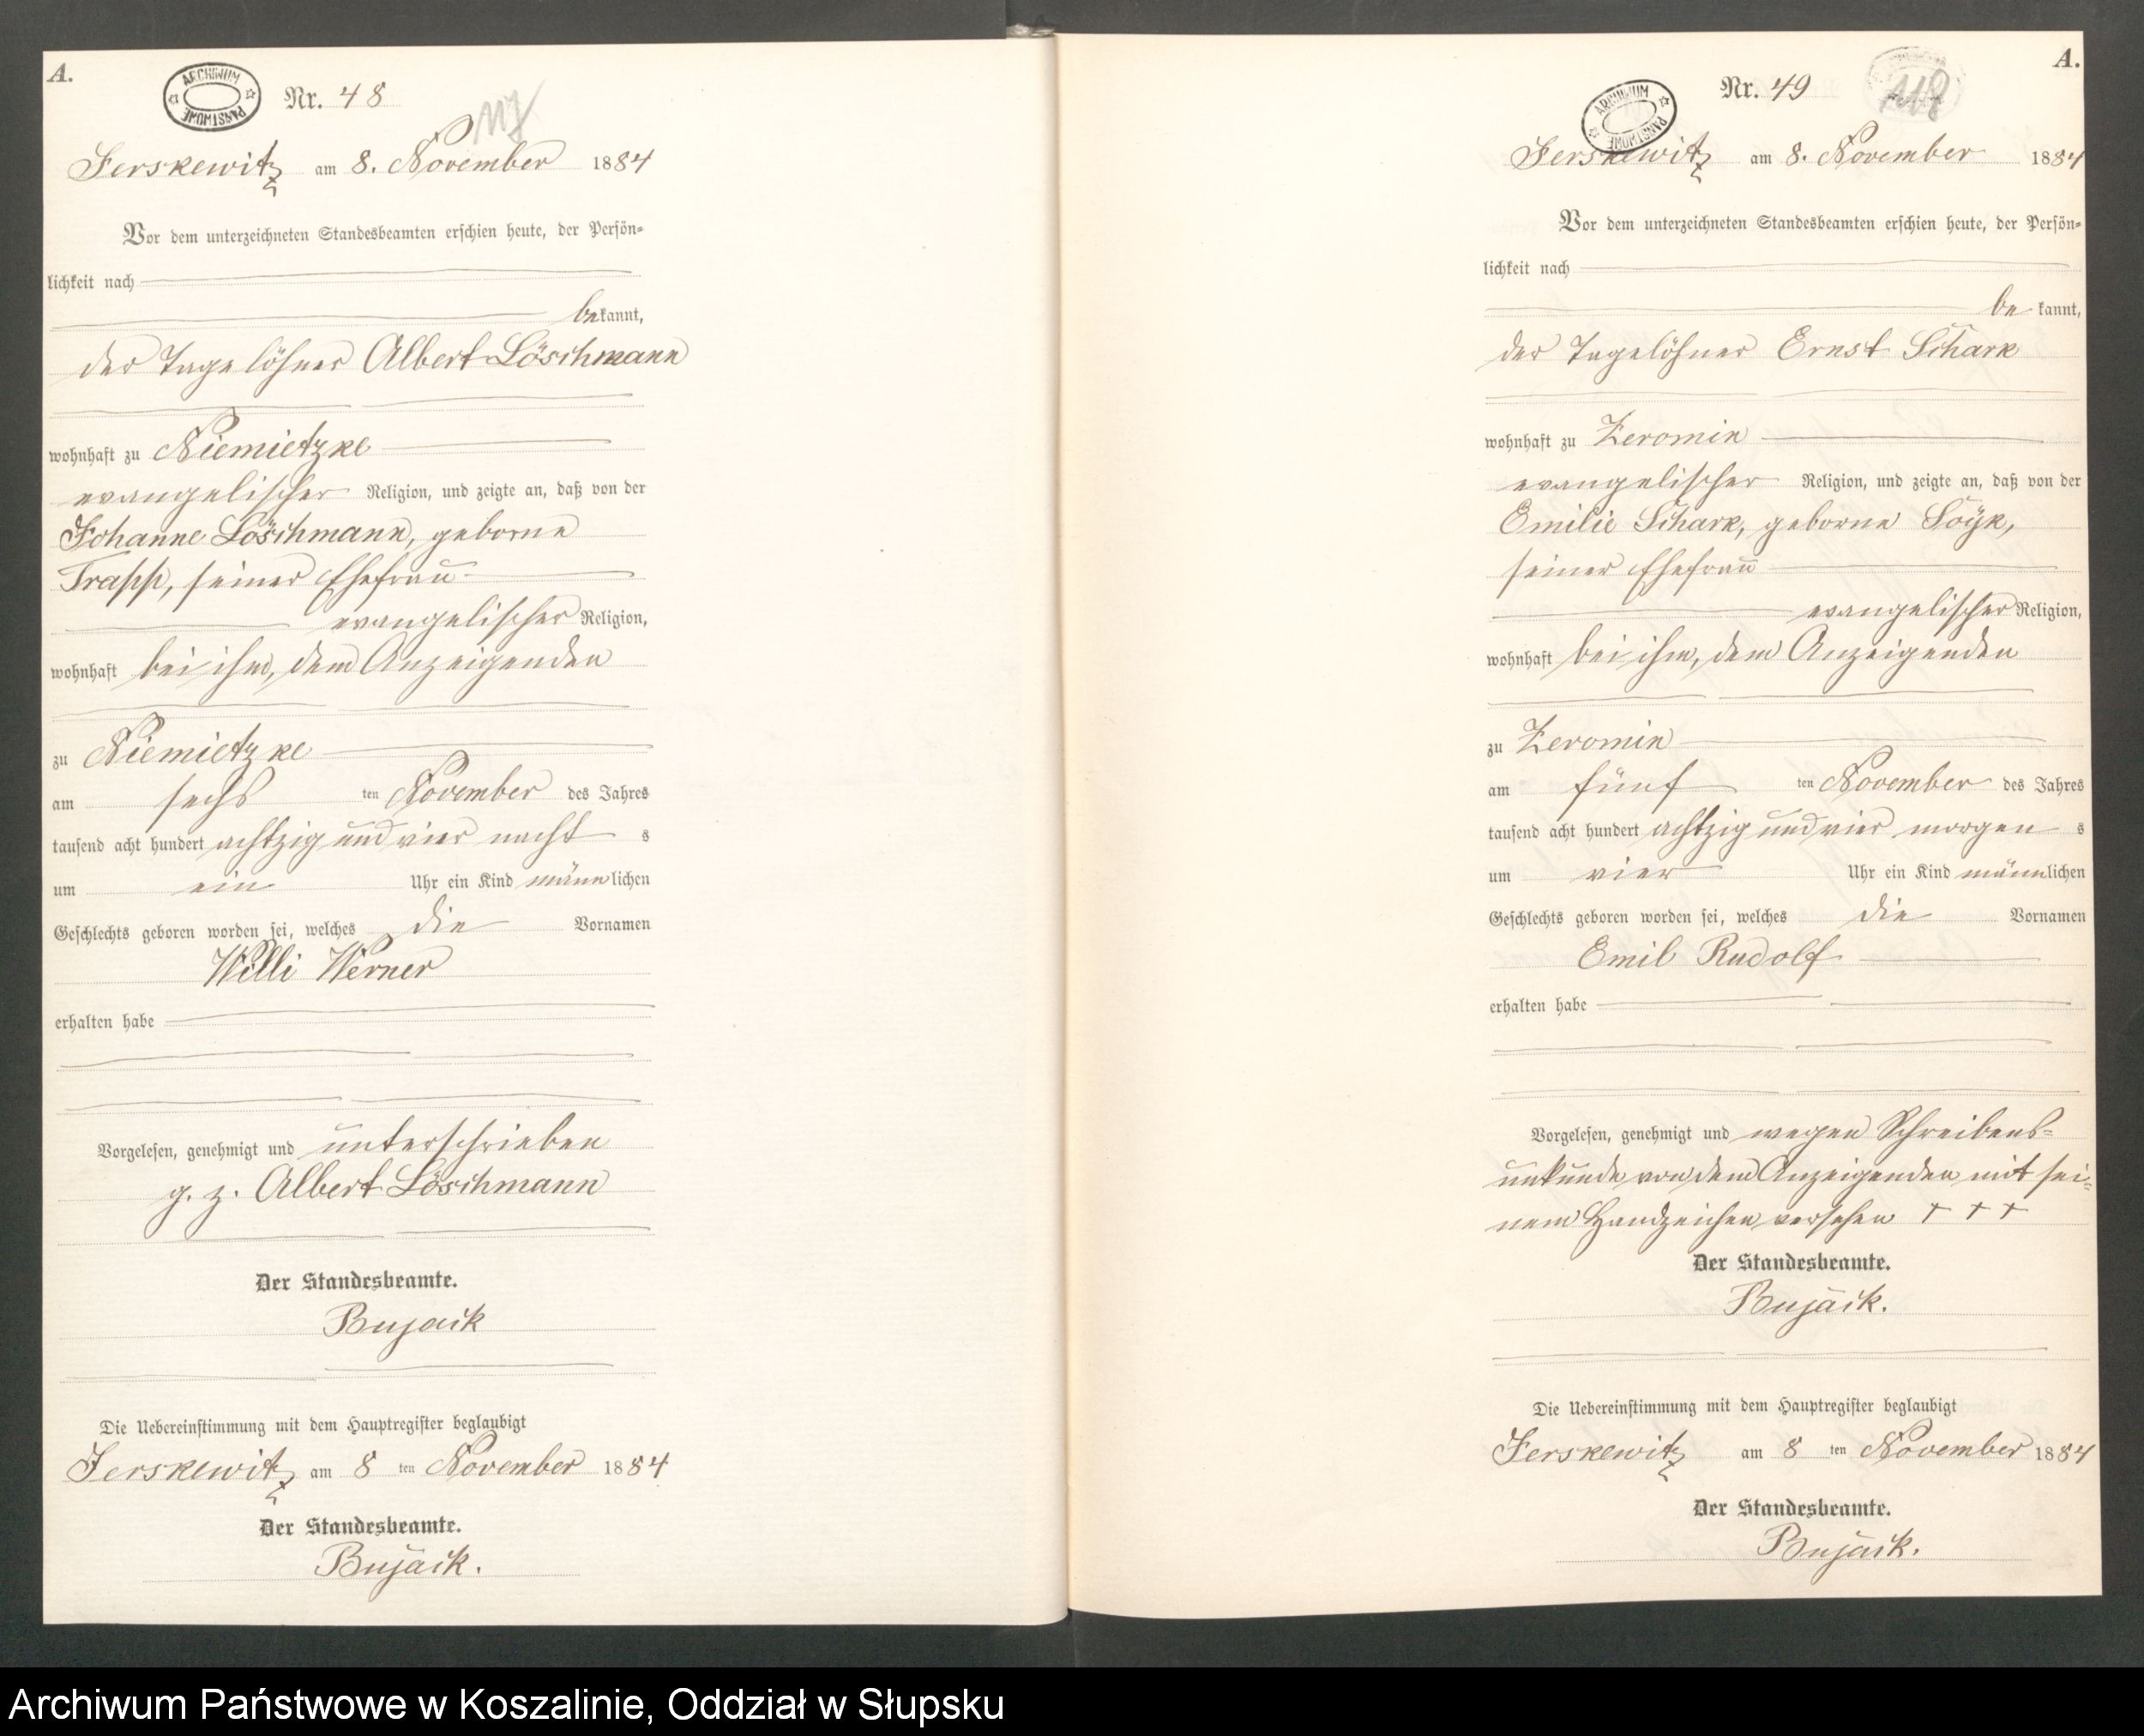 A.
ARCHIWUM PAŃSTWOWE
Nr. 48
117
Jerskewitz am 8. November 1884
Vor dem unterzeichneten Standesbeamten erschien heute, der Persön-
lichkeit nach
bekannt,
der Tagelöhner Albert Löschmann
wohnhaft zu Niemietzke
evangelischer Religion, und zeigte an, daß von der
Johanne Löschmann, geborne
Trapp, seiner Ehefrau
evangelischer Religion,
wohnhaft bei ihm, dem Anzeigenden
zu Niemietzke
am sechs ten November des Jahres
tausend acht hundert achtzig und vier nacht s
um ein Uhr ein Kind männlichen
Geschlechts geboren worden sei, welches die Vornamen
Willi Werner
erhalten habe
Vorgelesen, genehmigt und unterschrieben
g. z. Albert Löschmann
Der Standesbeamte.
Bujack
Die Uebereinstimmung mit dem Hauptregister beglaubigt
Jerskewitz am 8 ten November 1884
Der Standesbeamte.
Bujack.
A.
ARCHIWUM PAŃSTWOWE
Nr. 49
118
Jerskewitz am 8. November 1884
Vor dem unterzeichneten Standesbeamten erschien heute, der Persön-
lichkeit nach
be kannt,
der Tagelöhner Ernst Schark
wohnhaft zu Zeromin
evangelischer Religion, und zeigte an, daß von der
Emilie Schark, geborne Soÿk,
seiner Ehefrau
evangelischer Religion,
wohnhaft bei ihm, dem Anzeigenden
zu Zeromin
am fünf ten November des Jahres
tausend acht hundert achtzig und vier morgen s
um vier Uhr ein Kind männlichen
Geschlechts geboren worden sei, welches die Vornamen
Emil Rudolf
erhalten habe
Vorgelesen, genehmigt und wegen Schreibens-
unkunde von dem Anzeigenden mit sei-
nem Handzeichen versehen + + +
Der Standesbeamte.
Bujack.
Die Uebereinstimmung mit dem Hauptregister beglaubigt
Jerskewitz am 8 ten November 1884
Der Standesbeamte.
Bujack.
Archiwum Państwowe w Koszalinie, Oddział w Słupsku